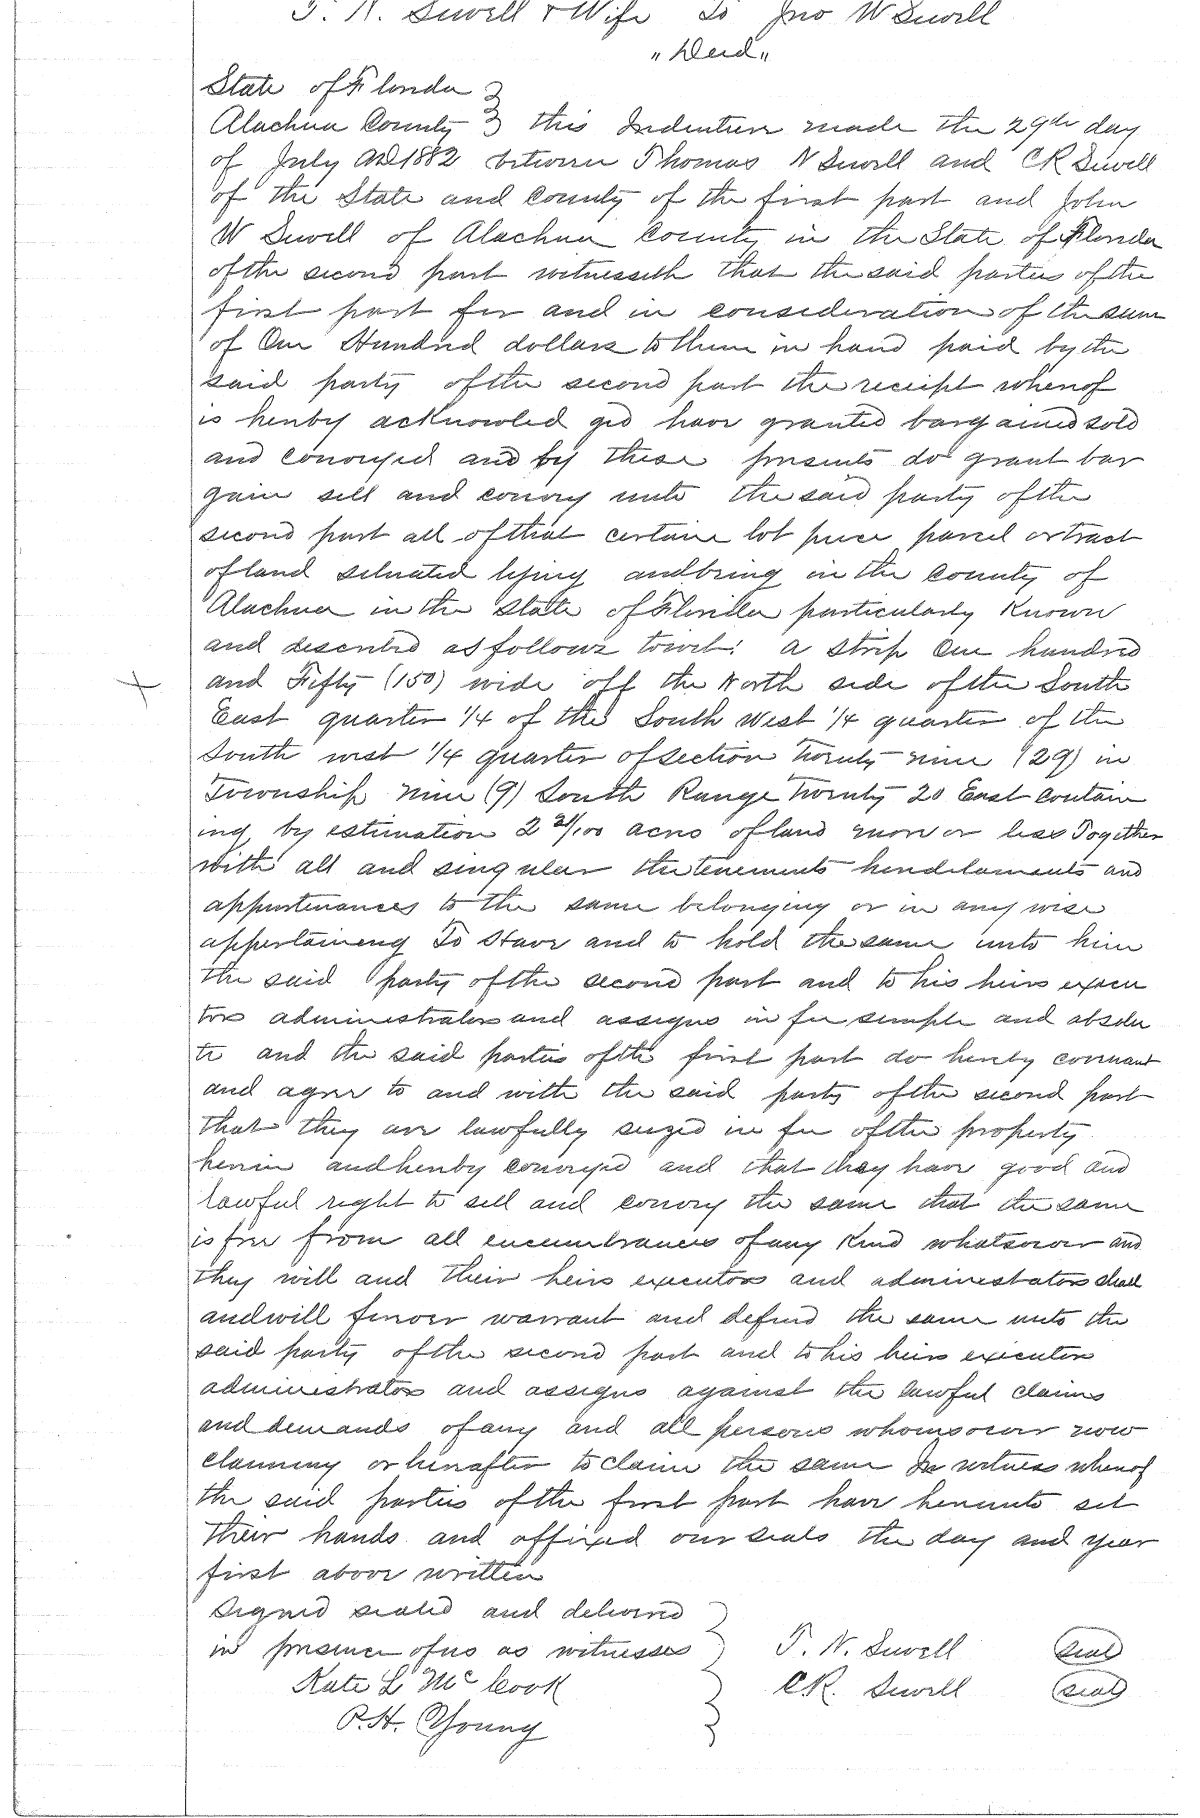 T. N. Sewell & Wife To Jno W Sewell
"Deed"
State of Florida
Alachua County this Indenture made the 29th day
of July AD 1882 between Thomas N Sewell and CR Sewell
of the State and County of the first part and John
W Sewell of Alachua County in the State of Florida
of the second part witnesseth that the said parties of the
first part for and in consideration of the sum
of One Hundred dollars to them in hand paid by the
said party of the second part the receipt whereof
is hereby acknowled ged have granted bargained sold
and conveyed and by these presents do grant bar
gain sell and convey unto the said party of the
second part all of that certain lot piece parcel or tract
of land situated lying and being in the County of
Alachua in the State of Florida particularly Known
and described as follows towit: A strip One hundred
and Fifty (150) wide off the North side of the South
East quarter 1/4 of the South West 1/4 quarter of the
South west 1/4 quarter of section Twenty nine (29) in
Township nine (9) South Range Twenty 20 East contain
ing by estimation 2 21/100 acres of land more or less Together
with all and singular the tenements hereditaments and
appurtenances to the same belonging or in any wise
appertaining To Have and to hold the same unto him
the said party of the second part and to his heirs execu
tors administrators and assigns in fee simple and absolu
te and the said parties of the first part do hereby covenant
and agree to and with the said party of the second part
that they are lawfully seized in fee of the property
herein and hereby conveyed and that they have good and
lawful right to sell and convey the same that the same
is free from all encumbrances of any Kind whatsoever and
they will and their heirs executors and administrators shall
and will forever warrant and defend the same unto the
said party of the second part and to his heirs executors
administrators and assigns against the lawful claims
and demands of any and all persons whomsoever now
claiming or hereafter to claim the same In witness whereof
the said parties of the first part have hereunto set
their hands and affixed our seals the day and year
first above written
Signed sealed and delivered
in presence of us as witnesses T. N. Sewell seal
Kate L McCook CR. Sewell seal
P. H. Young